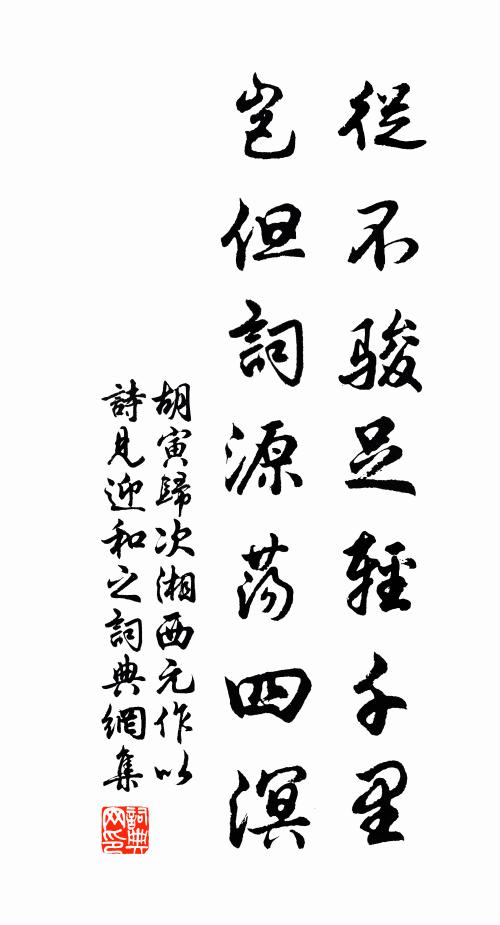 從不駿足輕千里
豈但詞源蕩四溟
胡寅歸次湘西元作以
詩見迎和之詞典網集
詞典
网印